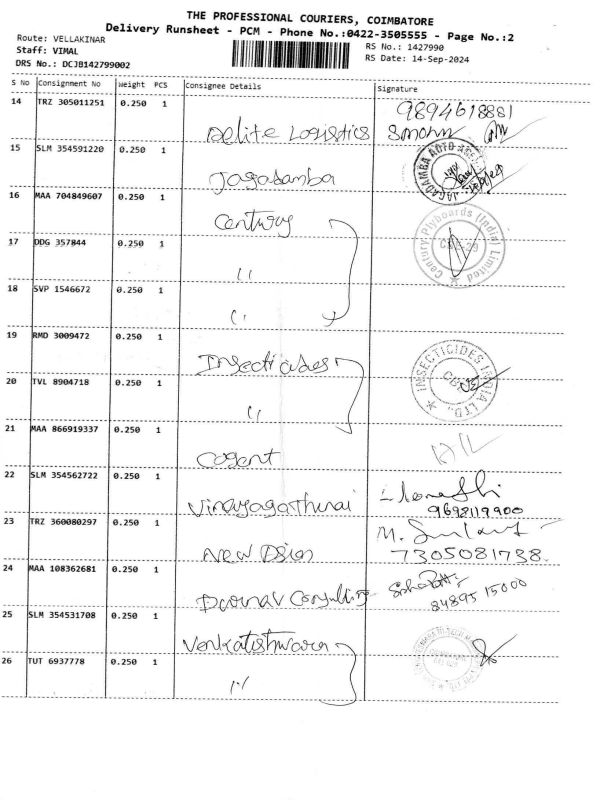 THE PROFESSIONAL COURIERS, COIMBATORE
Delivery Runsheet - PCM - Phone No.:0422-3505555 - Page No.:2
Route: VELLAKINAR
RS No.: 1427990
Staff: VIMAL
RS Date: 14-Sep-2024
DRS No.: DCJB142799002
S No Consignment No Weight PCS Consignee Details Signature
14 TRZ 305011251 0.250 1
9894618881
Delite Logistics
15 SLM 354591220 0.250 1
JAGADAMBA AUTO
Jagadamba
16 MAA 704849607 0.250 1
Century
Century Plyboards (India) Limited
17 DDG 357844 0.250 1
"
18 SVP 1546672 0.250 1
"
19 RMD 3009472 0.250 1
Insecticides
INSECTICIDES INDIA LTD.,
20 TVL 8904718 0.250 1
"
21 MAA 866919337 0.250 1
Cogent
22 SLM 354562722 0.250 1
Vinayagathunai
9698119900
23 TRZ 360080297 0.250 1
M.
New Dsign
7305081738
24 MAA 108362681 0.250 1
Consulting
84895 15000
25 SLM 354531708 0.250 1
Venkateshwara
26 TUT 6937778 0.250 1
"